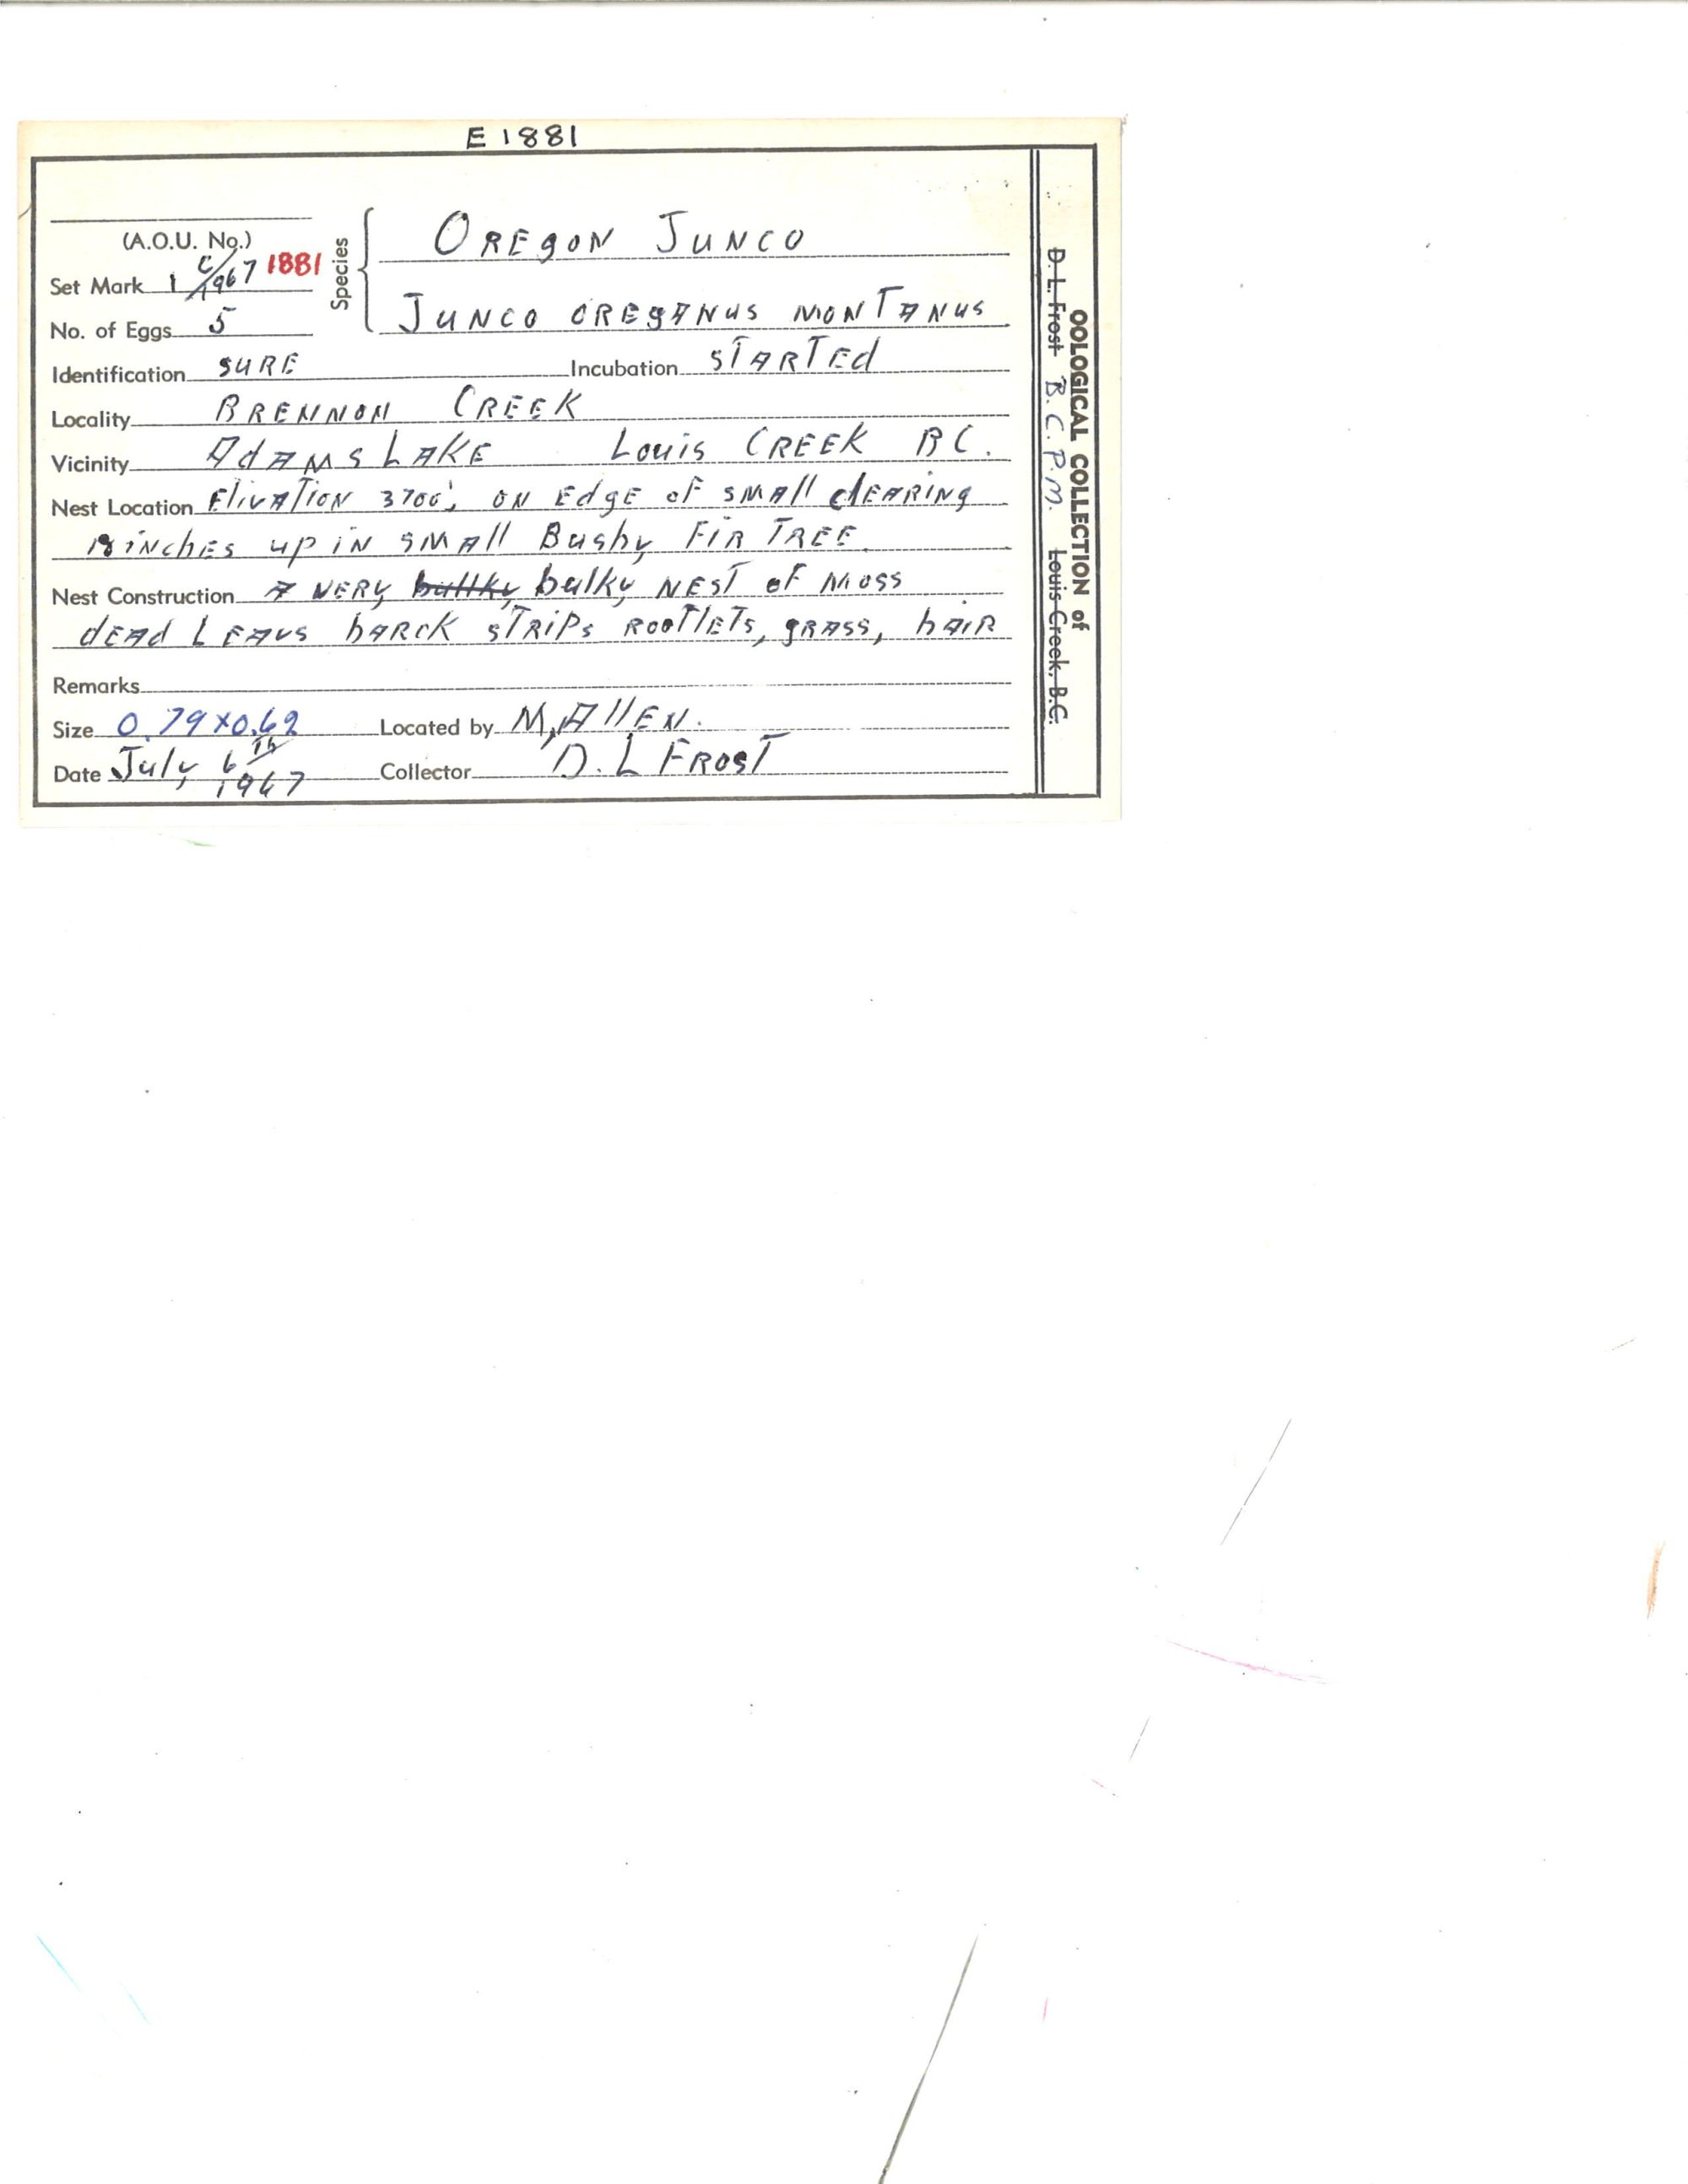 E 1881
(A.O.U. No.)
Set Mark 1 C/1967 1881
No. of Eggs 5
Species
OREGON JUNCO
JUNCO OREGANUS MONTANUS
Identification SURE Incubation STARTEd
Locality BRENNON CREEK
Vicinity AdAMS LAKE LouiS CREEK BC.
Nest Location ElivATION 3700', ON EdgE oF SMAll clEARINg
inchES up iN SMAll Bushy FiR TREE
Nest Construction A VERY bullky bulky NEST oF MOSS
dEAd LEAVS bARcK STRiPS ROOTlETS, gRASS, hAiR
Remarks
Size 0.79 x 0.62 Located by M, AllEN.
Date July 6Th 1967 Collector D. L FROST
OOLOGICAL COLLECTION of
D. L. Frost B.C.P.M. Louis Creek, B.C.